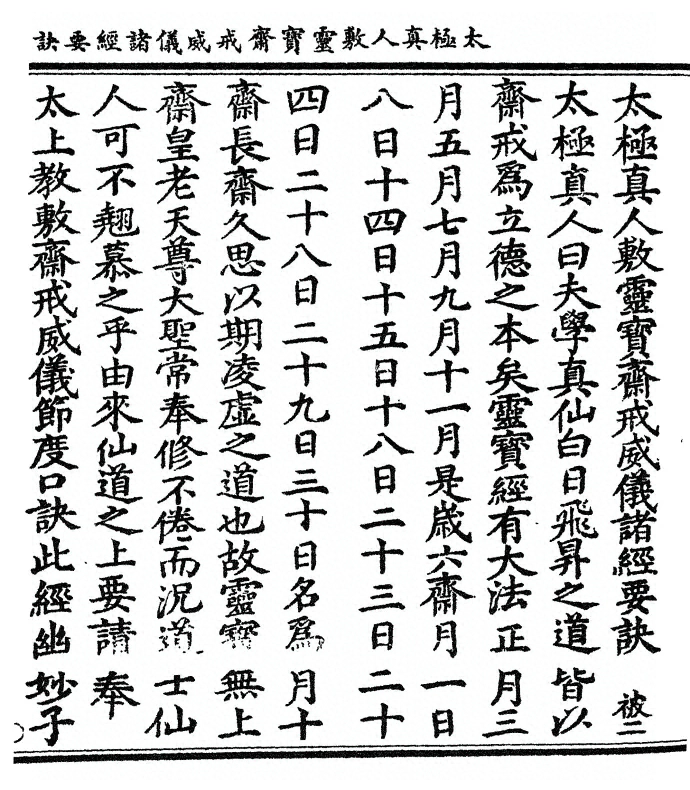 太極真人敷靈寶齋戒威儀諸經要訣
太極真人敷靈寶齋戒威儀諸經要訣 被二
太極真人曰夫學真仙白日飛昇之道皆以
齋戒爲立德之本矣靈寶經有大法正月三
月五月七月九月十一月是歲六齋月一日
八日十四日十五日十八日二十三日二十
四日二十八日二十九日三十日名爲月十
齋長齋久思以期凌虛之道也故靈寶無上
齋皇老天尊大聖常奉修不倦而況道士仙
人可不翹慕之乎由來仙道之上要請奉
太上教敷齋戒威儀節度口訣此經幽妙子